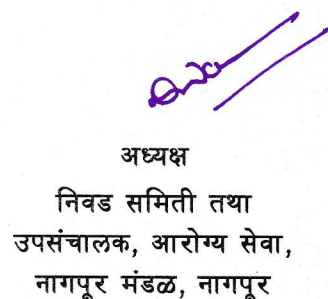 अध्यक्ष
निवड समिती तथा
उपसंचालक, आरोग्य सेवा,
नागपूर मंडळ, नागपूर